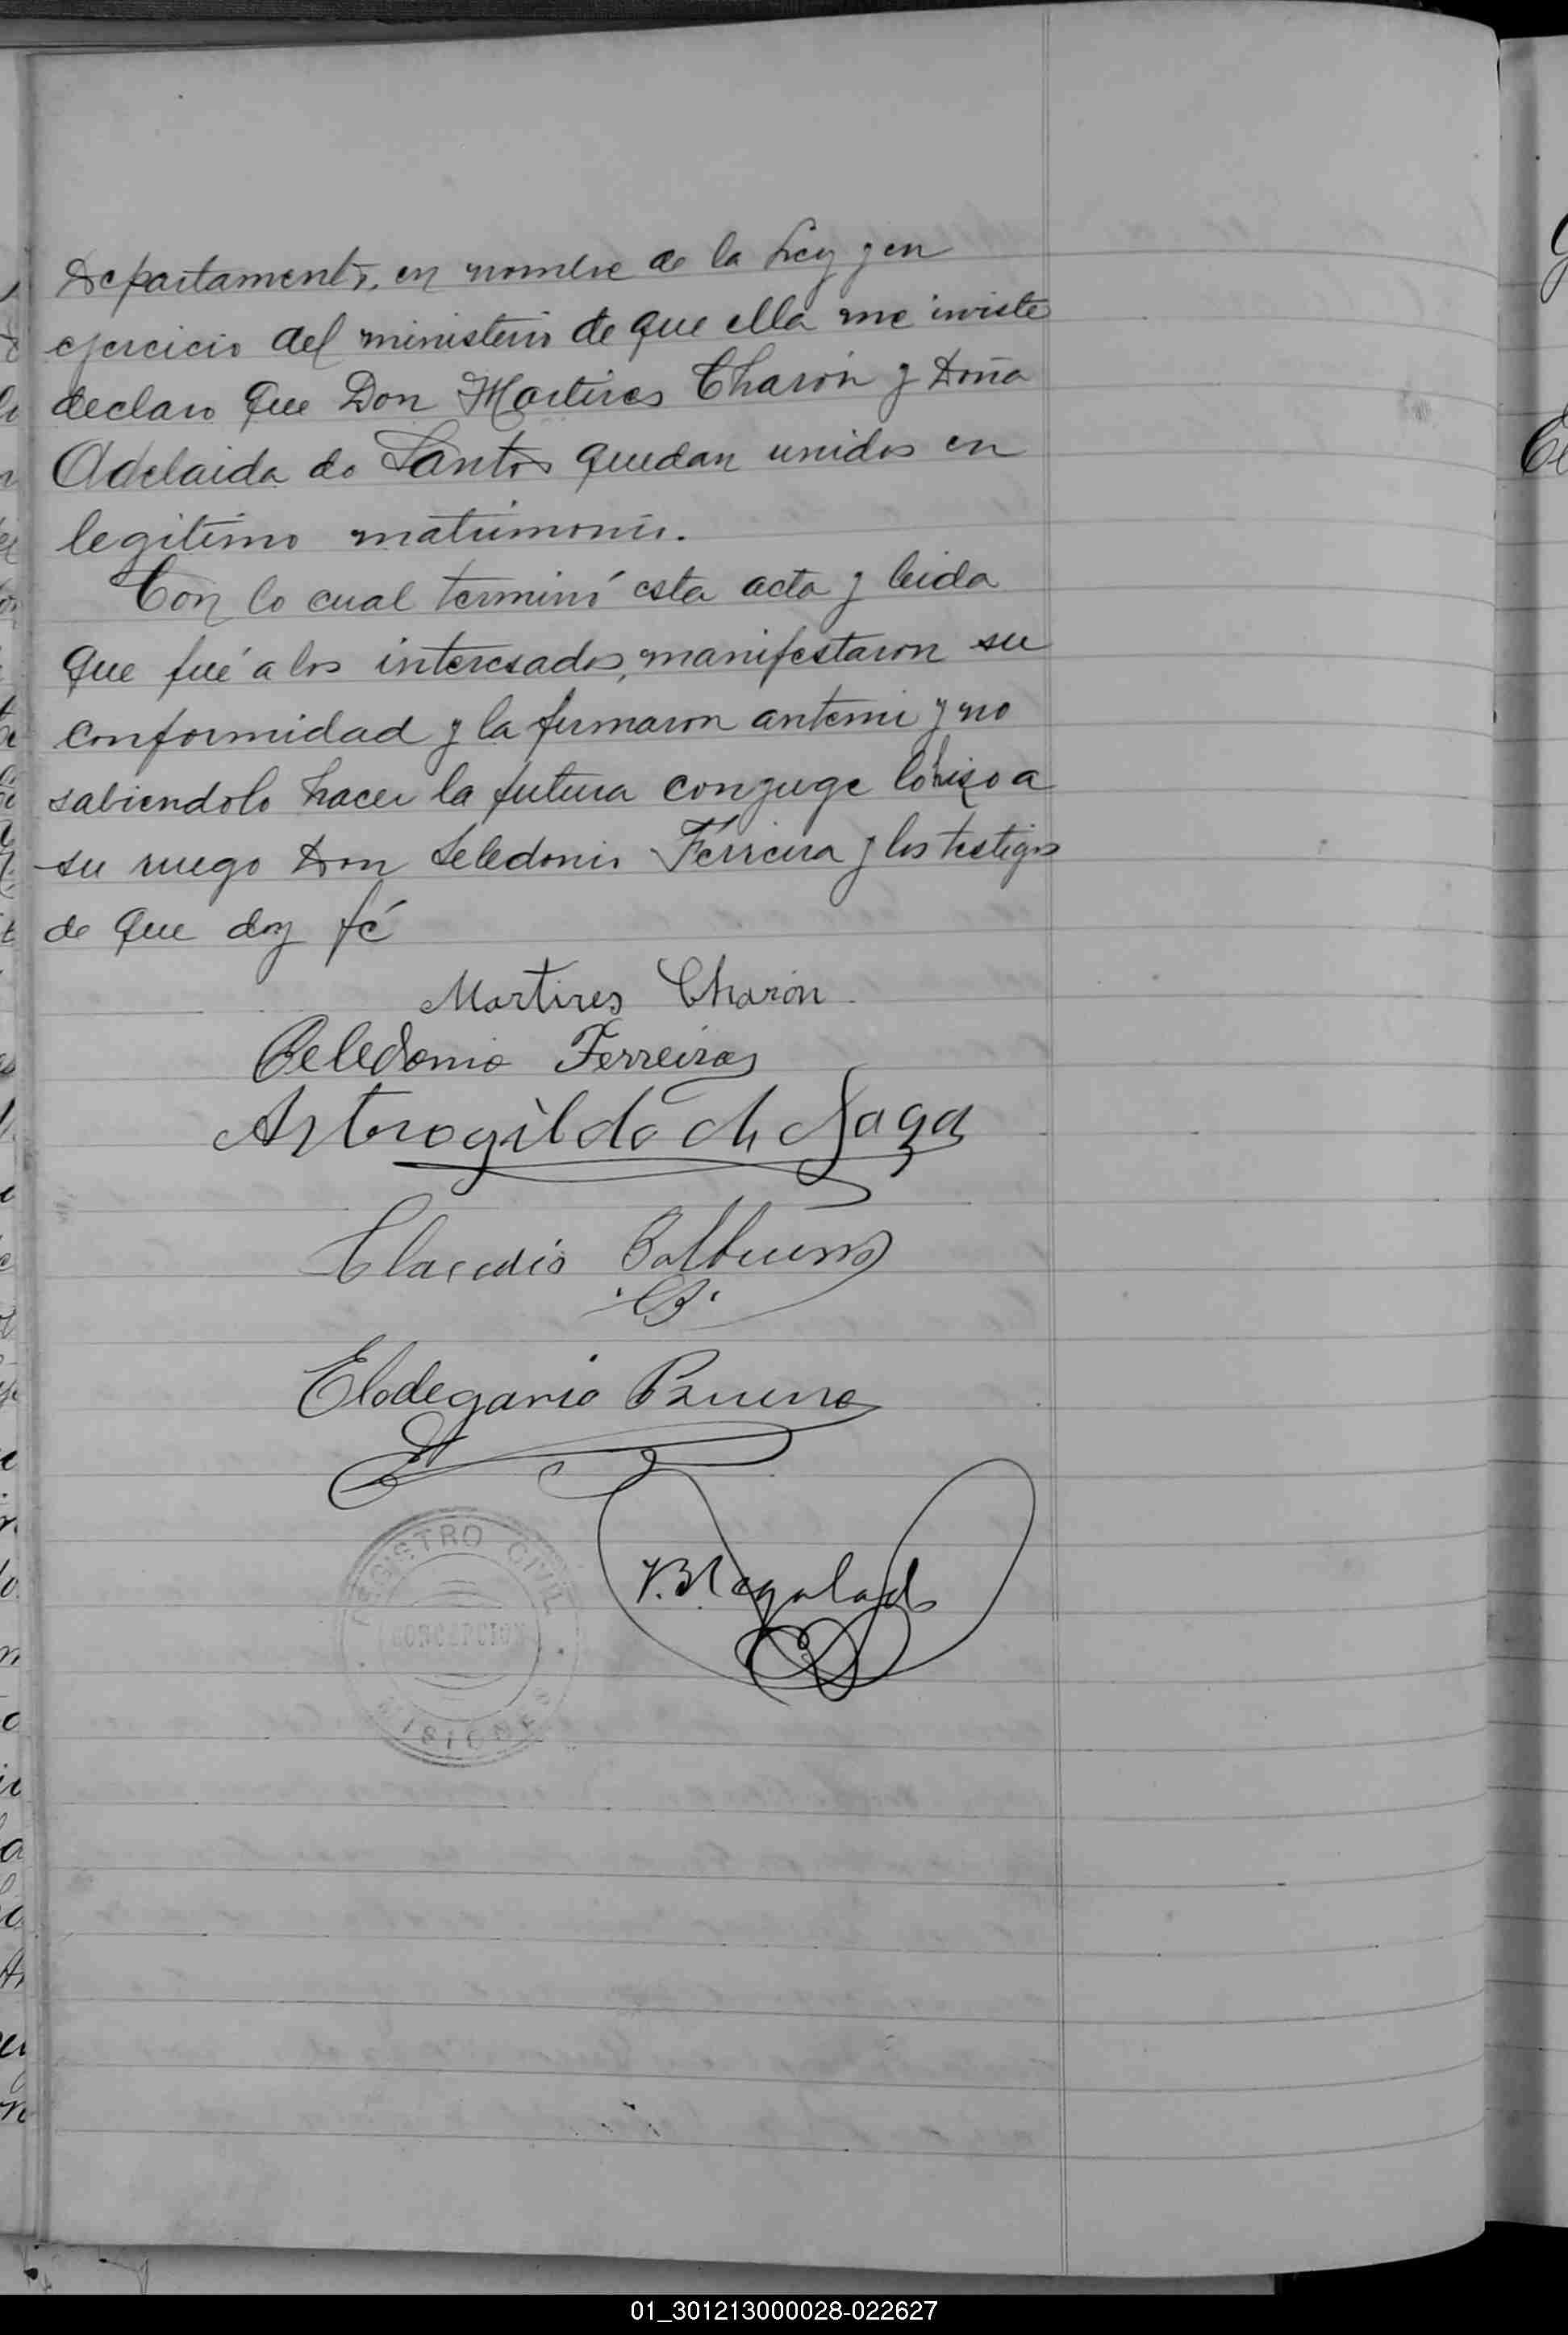 Departamento, en nombre de la Ley y en
ejercicio del ministerio de que ella me inviste
declaro que Don Martires Charón y Doña
Adelaida do Santos quedan unidos en
legitimo matrimonio.
Con lo cual terminó esta acta y leida
que fué a los interesados, manifestaron su
conformidad y la firmaron antemi y no
sabiendolo hacer la futura conyuge lo hizo a
su ruego Don Seledonio Ferreira y los testigos
de que doy fé
Martires Charón
Celedonio Ferreira
Astrogildo de Naga
Claudio Balbueno
B.
Elodegario Bueno
V. Regalado
REGISTRO CIVIL
CONCEPCION
MISIONES
01_301213000028-022627